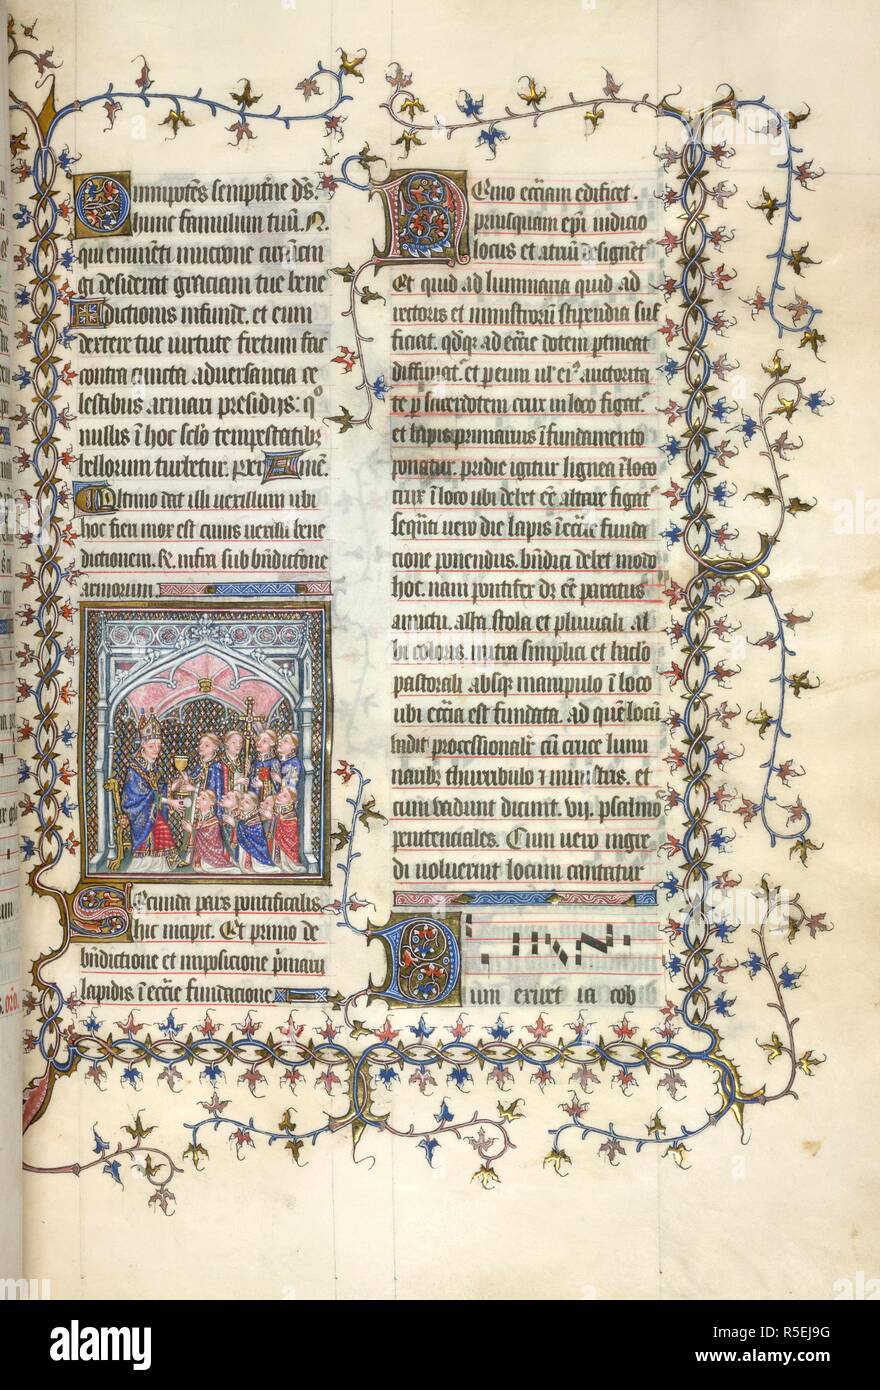 Omnipotēs sempitne ds.
hunc famulum tuū. N.
qui eminenti mucrone circūcin
gi desiderat graciam tue bene
dictionis infunde. et eum
dextere tue virtute fretum fac
contra cuncta adversancia ce
lestibus armari presidijs: qo
nullis ī hoc sclo tempestatibz
bellorum turbetur. p xpm Amē.
Ultimo dat illi vexillum ubi
hoc fieri mos est cuius vexilli bene
dictionem. R. infra sub bndictione
armorum.
Secunda pars pontificalis
hic incipit. Et primo de
bndictione et imposicione pmarii
lapidis ī eccie fundacione
Nemo ecciam edificet.
priusquam epi iudicio
locus et atriū designet
Et quid ad luminaria quid ad
rectoris et ministrorū stipendia suf
ficiat. qdqz ad eccie dotem ptineat
diffiniat et p eum vl ei auctorita
te p sacerdotem crux in loco figat
et lapis primarius ī fundamento
ponatur. pridie igitur lignea ī loco
crux ī loco ubi debet eē altare figat
Sequēti vero die lapis ī eccie funda
cione ponendus. bndici debet modo
hoc. nam pontifex dz eē paratus
amictu. alba stola et pluviali al
bi coloris. mitra simplici et baclo
pastorali absqz manipulo ī loco
ubi eccia est fundata. ad quē locū
vadit processionalr cū cruce lumi
naribz thurribulo ⁊ ministris. et
cum vadunt dicunt. vij. psalmos
penitenciales. Cum vero ingre
di voluerint locum cantatur
um exiret ia cob
alamy
Image ID: R5EJ9G
www.alamy.com